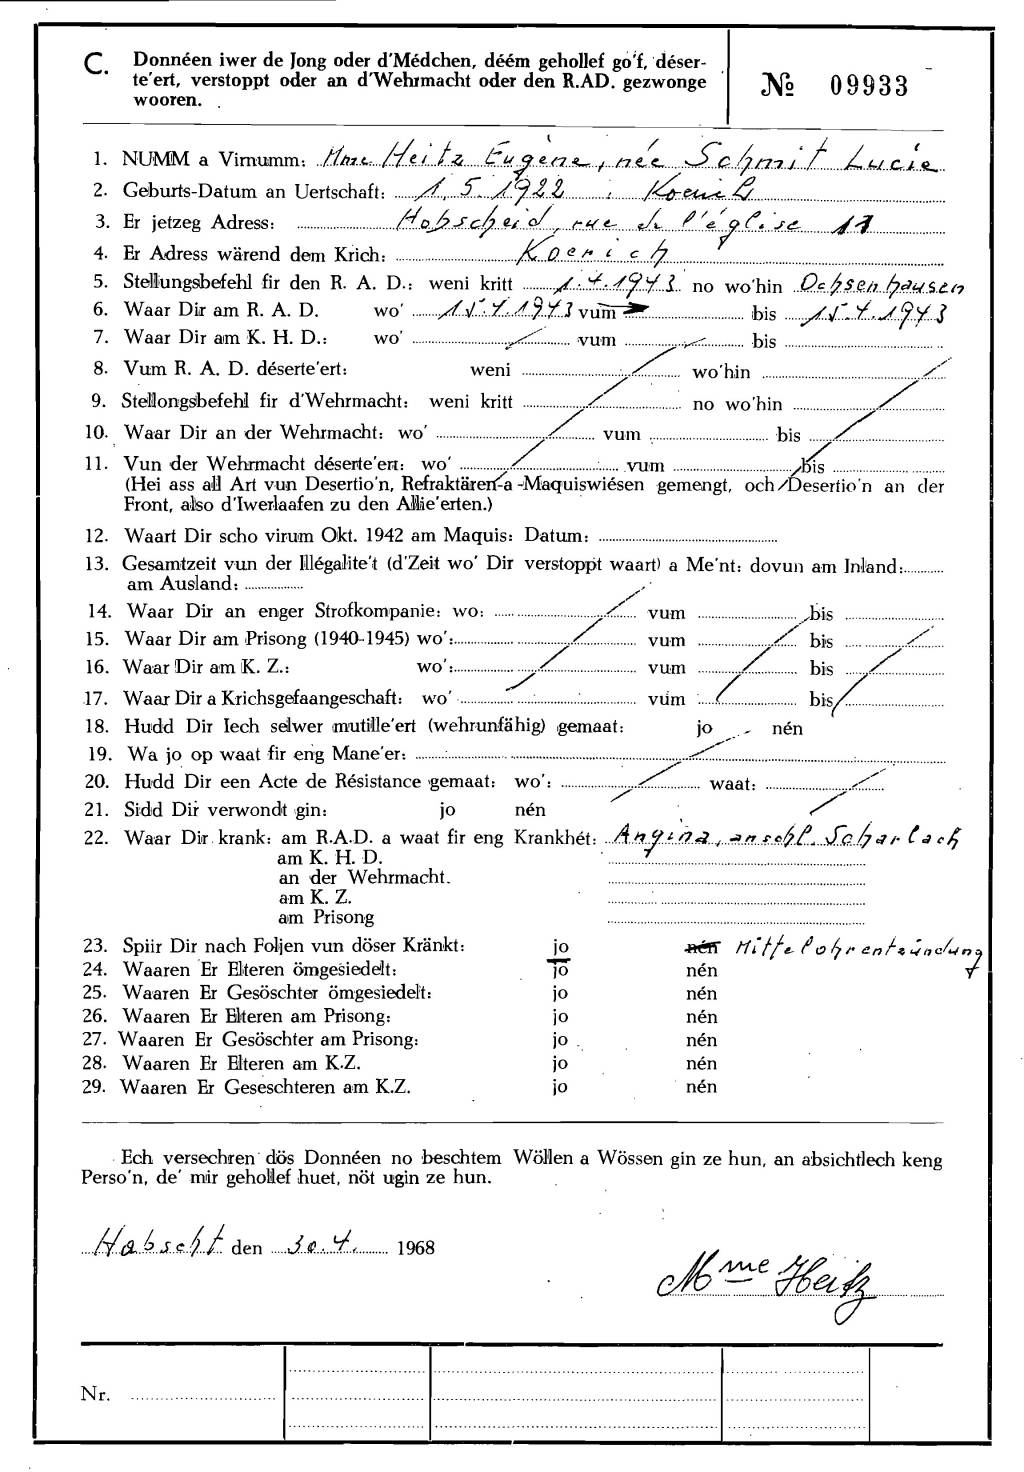 C. Donnéen iwer de Jong oder d'Médchen, déém gehollef go'f, déser-
te'ert, verstoppt oder an d'Wehrmacht oder den R.AD. gezwonge
wooren.
№ 09933
1. NUMM a Virnumm: Mme Heitz Eugène, née Schmit Lucie
2. Geburts-Datum an Uertschaft: 1. 5. 1922 : Koerich
3. Er jetzeg Adress: Hobscheid, rue de l'église 11
4. Er Adress wärend dem Krich: Koerich
5. Stellungsbefehl fir den R. A. D.: weni kritt 1.4.1943 no wo'hin Ochsenhausen
6. Waar Dir am R. A. D. wo' 15.4.1943 vum bis 15.4.1943
7. Waar Dir am K. H. D.: wo' vum bis
8. Vum R. A. D. déserte'ert: weni wo'hin
9. Stellongsbefehl fir d'Wehrmacht: weni kritt no wo'hin
10. Waar Dir an der Wehrmacht: wo' vum bis
11. Vun der Wehrmacht déserte'ert: wo' vum bis
(Hei ass all Art vun Desertio'n, Refraktären-a-Maquiswiésen gemengt, och Desertio'n an der
Front, also d'Iwerlaafen zu den Allie'erten.)
12. Waart Dir scho virum Okt. 1942 am Maquis: Datum:
13. Gesamtzeit vun der Illégalite't (d'Zeit wo' Dir verstoppt waart) a Me'nt: dovun am Inland:
am Ausland:
14. Waar Dir an enger Strofkompanie: wo: vum bis
15. Waar Dir am Prisong (1940-1945) wo': vum bis
16. Waar Dir am K. Z.: wo': vum bis
17. Waar Dir a Krichsgefaangeschaft: wo' vum bis
18. Hudd Dir Iech selwer mutille'ert (wehrunfähig) gemaat: jo nén
19. Wa jo op waat fir eng Mane'er:
20. Hudd Dir een Acte de Résistance gemaat: wo': waat:
21. Sidd Dir verwondt gin: jo nén
22. Waar Dir krank: am R.A.D. a waat fir eng Krankhét: Angina, anschl. Scharlach
am K. H. D.
an der Wehrmacht.
am K. Z.
am Prisong
23. Spiir Dir nach Foljen vun döser Kränkt: jo nén Mittelohrentzündung
24. Waaren Er Elteren ömgesiedelt: jo nén
25. Waaren Er Gesöschter ömgesiedelt: jo nén
26. Waaren Er Elteren am Prisong: jo nén
27. Waaren Er Gesöschter am Prisong: jo nén
28. Waaren Er Elteren am K.Z. jo nén
29. Waaren Er Geseschteren am K.Z. jo nén
Ech versechren dös Donnéen no beschtem Wöllen a Wössen gin ze hun, an absichtlech keng
Perso'n, de' mir gehollef huet, nöt ugin ze hun.
Habscht den 30.4. 1968
Mme Heitz
Nr.